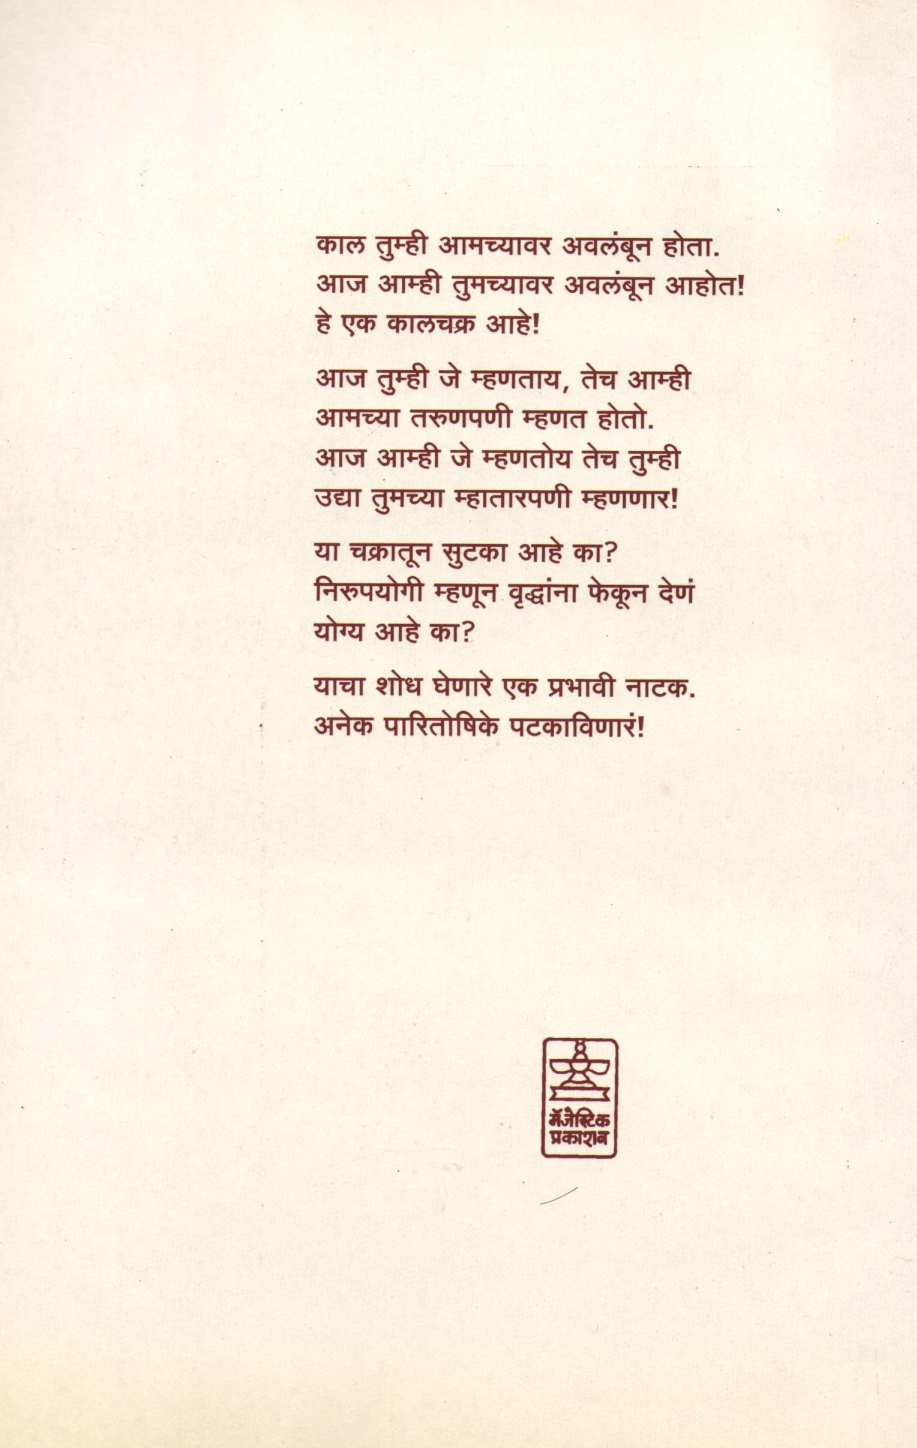 काल तुम्ही आमच्यावर अवलंबून होता.
आज आम्ही तुमच्यावर अवलंबून आहोत!
हे एक कालचक्र आहे!
आज तुम्ही जे म्हणताय, तेच आम्ही
आमच्या तरुणपणी म्हणत होतो.
आज आम्ही जे म्हणतोय तेच तुम्ही
उद्या तुमच्या म्हातारपणी म्हणणार!
या चक्रातून सुटका आहे का?
निरुपयोगी म्हणून वृद्धांना फेकून देणं
योग्य आहे का?
याचा शोध घेणारे एक प्रभावी नाटक.
अनेक पारितोषिके पटकाविणारं!
मॅजेस्टिक
प्रकाशन